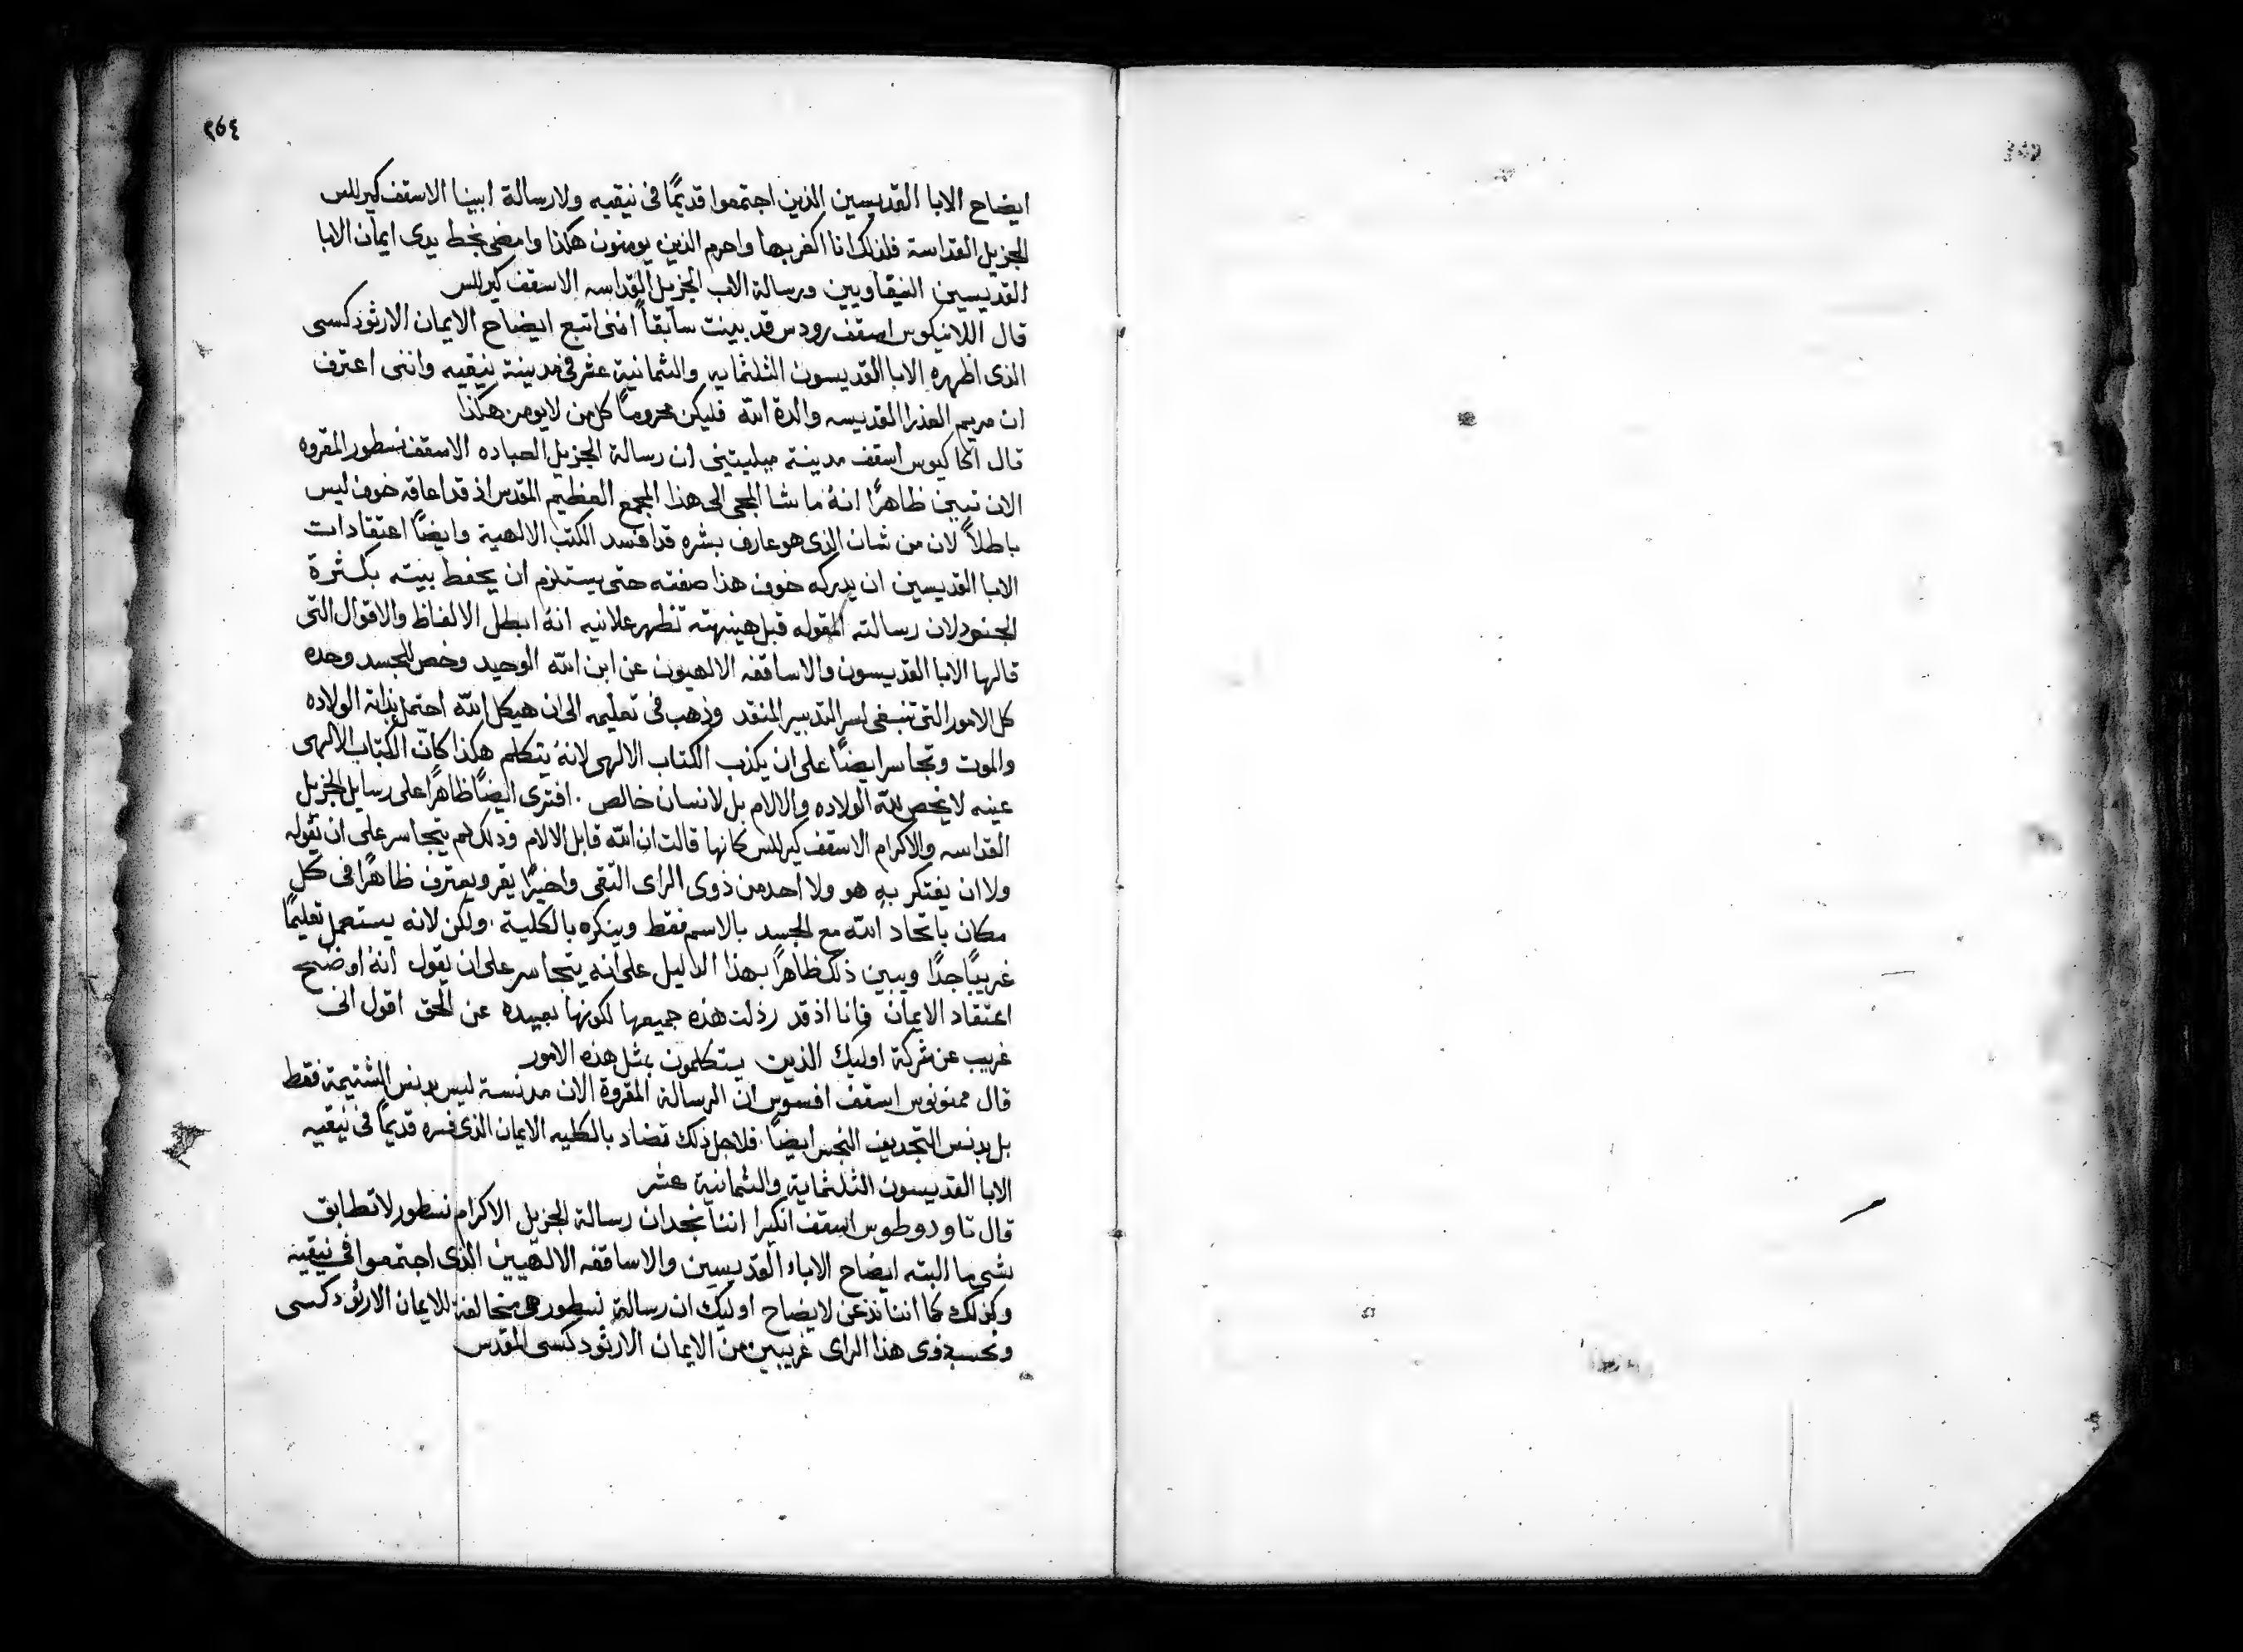 ٢٦٤
ايضاح الابا القديسين الذين اجتمعوا قديمًا في نيقيه ولا رسالة ابينا الاسقف كيرللس
الجزيل القداسة فلذلك انا اكفر بها واحرم الذين يومنون هكذا وامضي بخط يدي ايمان الابا
القديسين النيقاويين ورسالة الاب الجزيل القداسه الاسقف كيرللس
قال اللانيكوس اسقف رودس قد بينت سابقاً انني اتبع ايضاح الايمان الارثودكسي
الذي اظهره الابا القديسون الثلثمايه والثمانية عشر في مدينة نيقيه وانني اعترف
ان مريم العذرا القديسه والدة الله فليكن محرومًا كل من لا يومن هكذا
قال اكاكيوس اسقف مدينة ميليتيني ان رسالة الجزيل العباده الاسقف نسطور المقروه
الان تبين ظاهرًا انهُ ما شا المجي الى هذا المجمع العظيم المقدس اذ قد اعاقه خوف ليس
باطلاً لان من شان الذي هو عارف بشره قد افسد الكتب الالهية وايضًا اعتقادات
الابا القديسين ان يدركه خوف هذا صفته حتى يستلزم ان يحفظ بيته بكثرة
الجنود لان رسالته المقوله قبل هنيهته تظهر علانيه انهُ ابطل الالفاظ والاقوال التي
قالها الابا القديسون والاساقفه الالهيون عن ابن الله الوحيد وخص للجسد وحده
كل الامور التي تنبغي لسر التدبير المنقد وذهب في تعليمه الى ان هيكل الله احتمل بذاته الولاده
والموت وتجاسر ايضًا على ان يكذب الكتاب الالهي لانهُ يتكلم هكذا كانّ الكتاب الالهي
عينه لا يخص لله الولاده والالام بل لانسان خالص . افترى ايضًا ظاهرًا على رسايل الجزيل
القداسه والاكرام الاسقف كيرللس كانها قالت ان الله قابل الالام وذلك لم يتجاسر على ان يقوله
ولا ان يفتكر بهِ هو ولا احد من ذوي الراى التقي واخيرًا يقر ويعترف ظاهرًا في كل
مكان باتحاد الله مع الجسد بالاسم فقط وينكره بالكلية . ولكن لانه يستعمل تعليمًا
غريبًا جدًا ويبين ذلك ظاهرًا بهذا الدليل على انه يتجاسر على ان يقول انهُ اوضح
اعتقاد الايمان فانا اذ قد رذلت هذه جميعها لكونها بعيده عن الحق اقول اني
غريب عن شركة اوليك الذين يتكلمون بمثل هذه الامور
قال ممنونوس اسقف افسوس ان الرسالة المقروة الان مدنسة ليس بدنس الشتيمة فقط
بل بدنس التجديف النجس ايضًا . فلاجل ذلك تضاد بالكليه الايمان الذي فسره قديمًا في نيقيه
الابا القديسون الثلثماية والثمانية عشر
قال تاودوطوس اسقف انكيرا اننا نجد ان رسالة الجزيل الاكرام نسطور لا تطابق
بشي ما البته ايضاح الاباء القديسين والاساقفه الالهيين الذي اجتمعوا في نيقيه
وكذلك كما اننا نذعن لايضاح اوليك ان رسالة نسطور هي مخالفة للايمان الارثودكسي
ونحسب ذوي هذا الراى غريبين من الايمان الارثودكسي المقدس